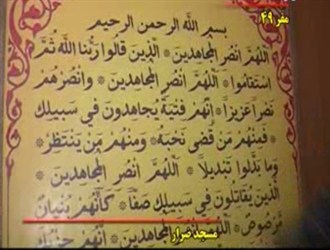 مقر ٤٩
بسم الله الرحمن الرحيم
اللهم انصر المجاهدين * الذين قالوا ربنا الله ثم
استقاموا * اللهم انصر المجاهدين * وانصرهم
نصرا عزيزا * انهم فتية يجاهدون في سبيلك
* فمنهم من قضى نحبه * ومنهم من ينتظر *
وما بدلوا تبديلا * اللهم انصر المجاهدين *
الذين يقاتلون في سبيلك صفا * كأنهم بنيان
مرصوص * اللهم انصر المجاهدين * انهم حزبك
مسجد ضرار